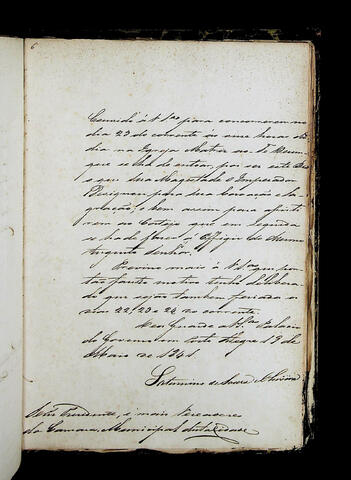 6
Convido á V Sas para concorrerem no
dia 23 do corrente ás onze horas do
dia na Igreja Matriz ao Te Deum
que se há de entoar, por ser este Di
a que Sua Magestade o Imperador
Designou para Sua Coroação e Sa
gração, e bem assim para assisti
rem ao Cortejo que em seguida
se ha de fazer á Effigie do Mesmo
Augusto Senhor.
Previno mais á V Sas que por
tão fausto motivo tenho delibera
do que sejão tambem feriados os
dias 22, 23 e 24 do corrente.
Deos Guarde a V Sas Palacio
do Governo em Porto Alegre 19 de
Maio de 1841
Saturnino de Souza e Oliveira
Snrs Presidente, e mais Vereadores
da Camara Municipal desta Cidade